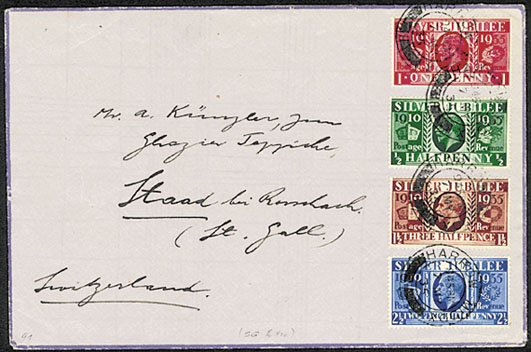 SILVER JUBILEE
1910 1935
1 ONE PENNY 1
SILVER JUBILEE
1910 1935
Postage Revenue
1/2 HALFPENNY 1/2
SILVER JUBILEE
1910 1935
Postage Revenue
1½ THREE HALFPENCE 1½
SILVER JUBILEE
1910 1935
Postage Revenue
2½ TWOPENCE HALFPENNY 2½
HARR
Mr. A. Künzler, zum
Teppiche,
Staad bei Rorschach.
(St. Gall.)
Switzerland.